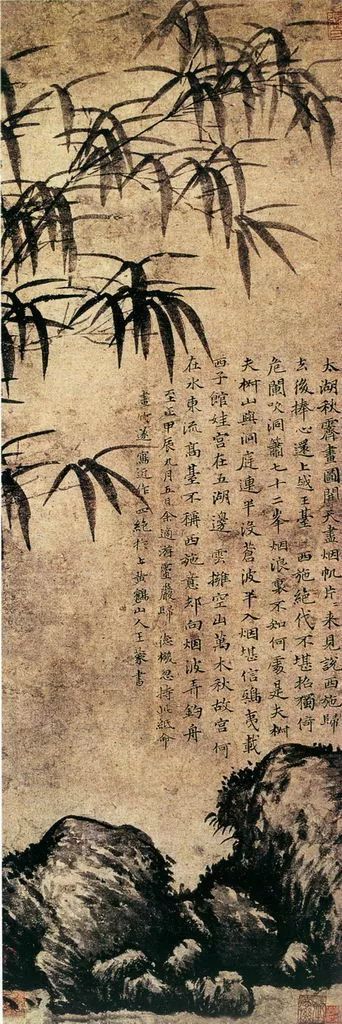 太湖秋霽畫圖開天盡烟帆片片來見說西施歸
去後捧心還上越王臺 西施絕代不堪招獨倚
危闌吹洞簫七十二峯烟浪裏不知何處是夫椒
夫椒山與洞庭連半沒蒼波半入烟堪信鴟夷載
西子館娃宮在五湖邊 雲擁空山萬木秋故宮何
在水東流高臺不稱西施意却向烟波弄釣舟
至正甲辰九月五日余適游靈巖歸德機忽持此紙命
畫竹遂寫近作四絕於上黃鶴山人王蒙書